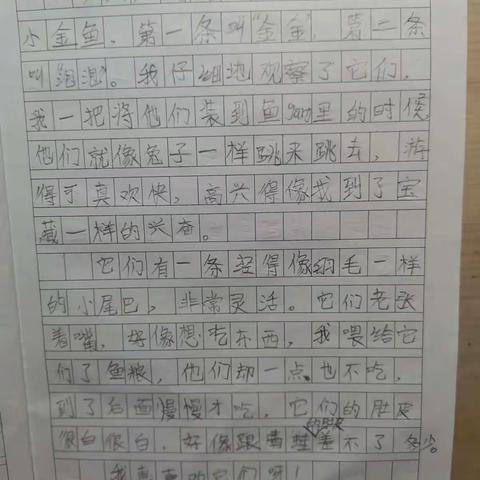 小金鱼，第一条叫“金金”，第二条
叫“泡泡”。我仔细地观察了它们，
我一把将他们装到鱼gang里的时候，
他们就像兔子一样跳来跳去，游
得可真欢快，高兴得像找到了宝
藏一样的兴奋。
它们有一条轻得像羽毛一样
的小尾巴，非常灵活。它们老张
着嘴，好像想吃东西，我喂给它
们了鱼粮，他们却一点也不吃，
到了后面慢慢才吃，它们的肚皮
很白很白，好像跟
的肚皮
差不了多少。
我真喜欢它们呀！